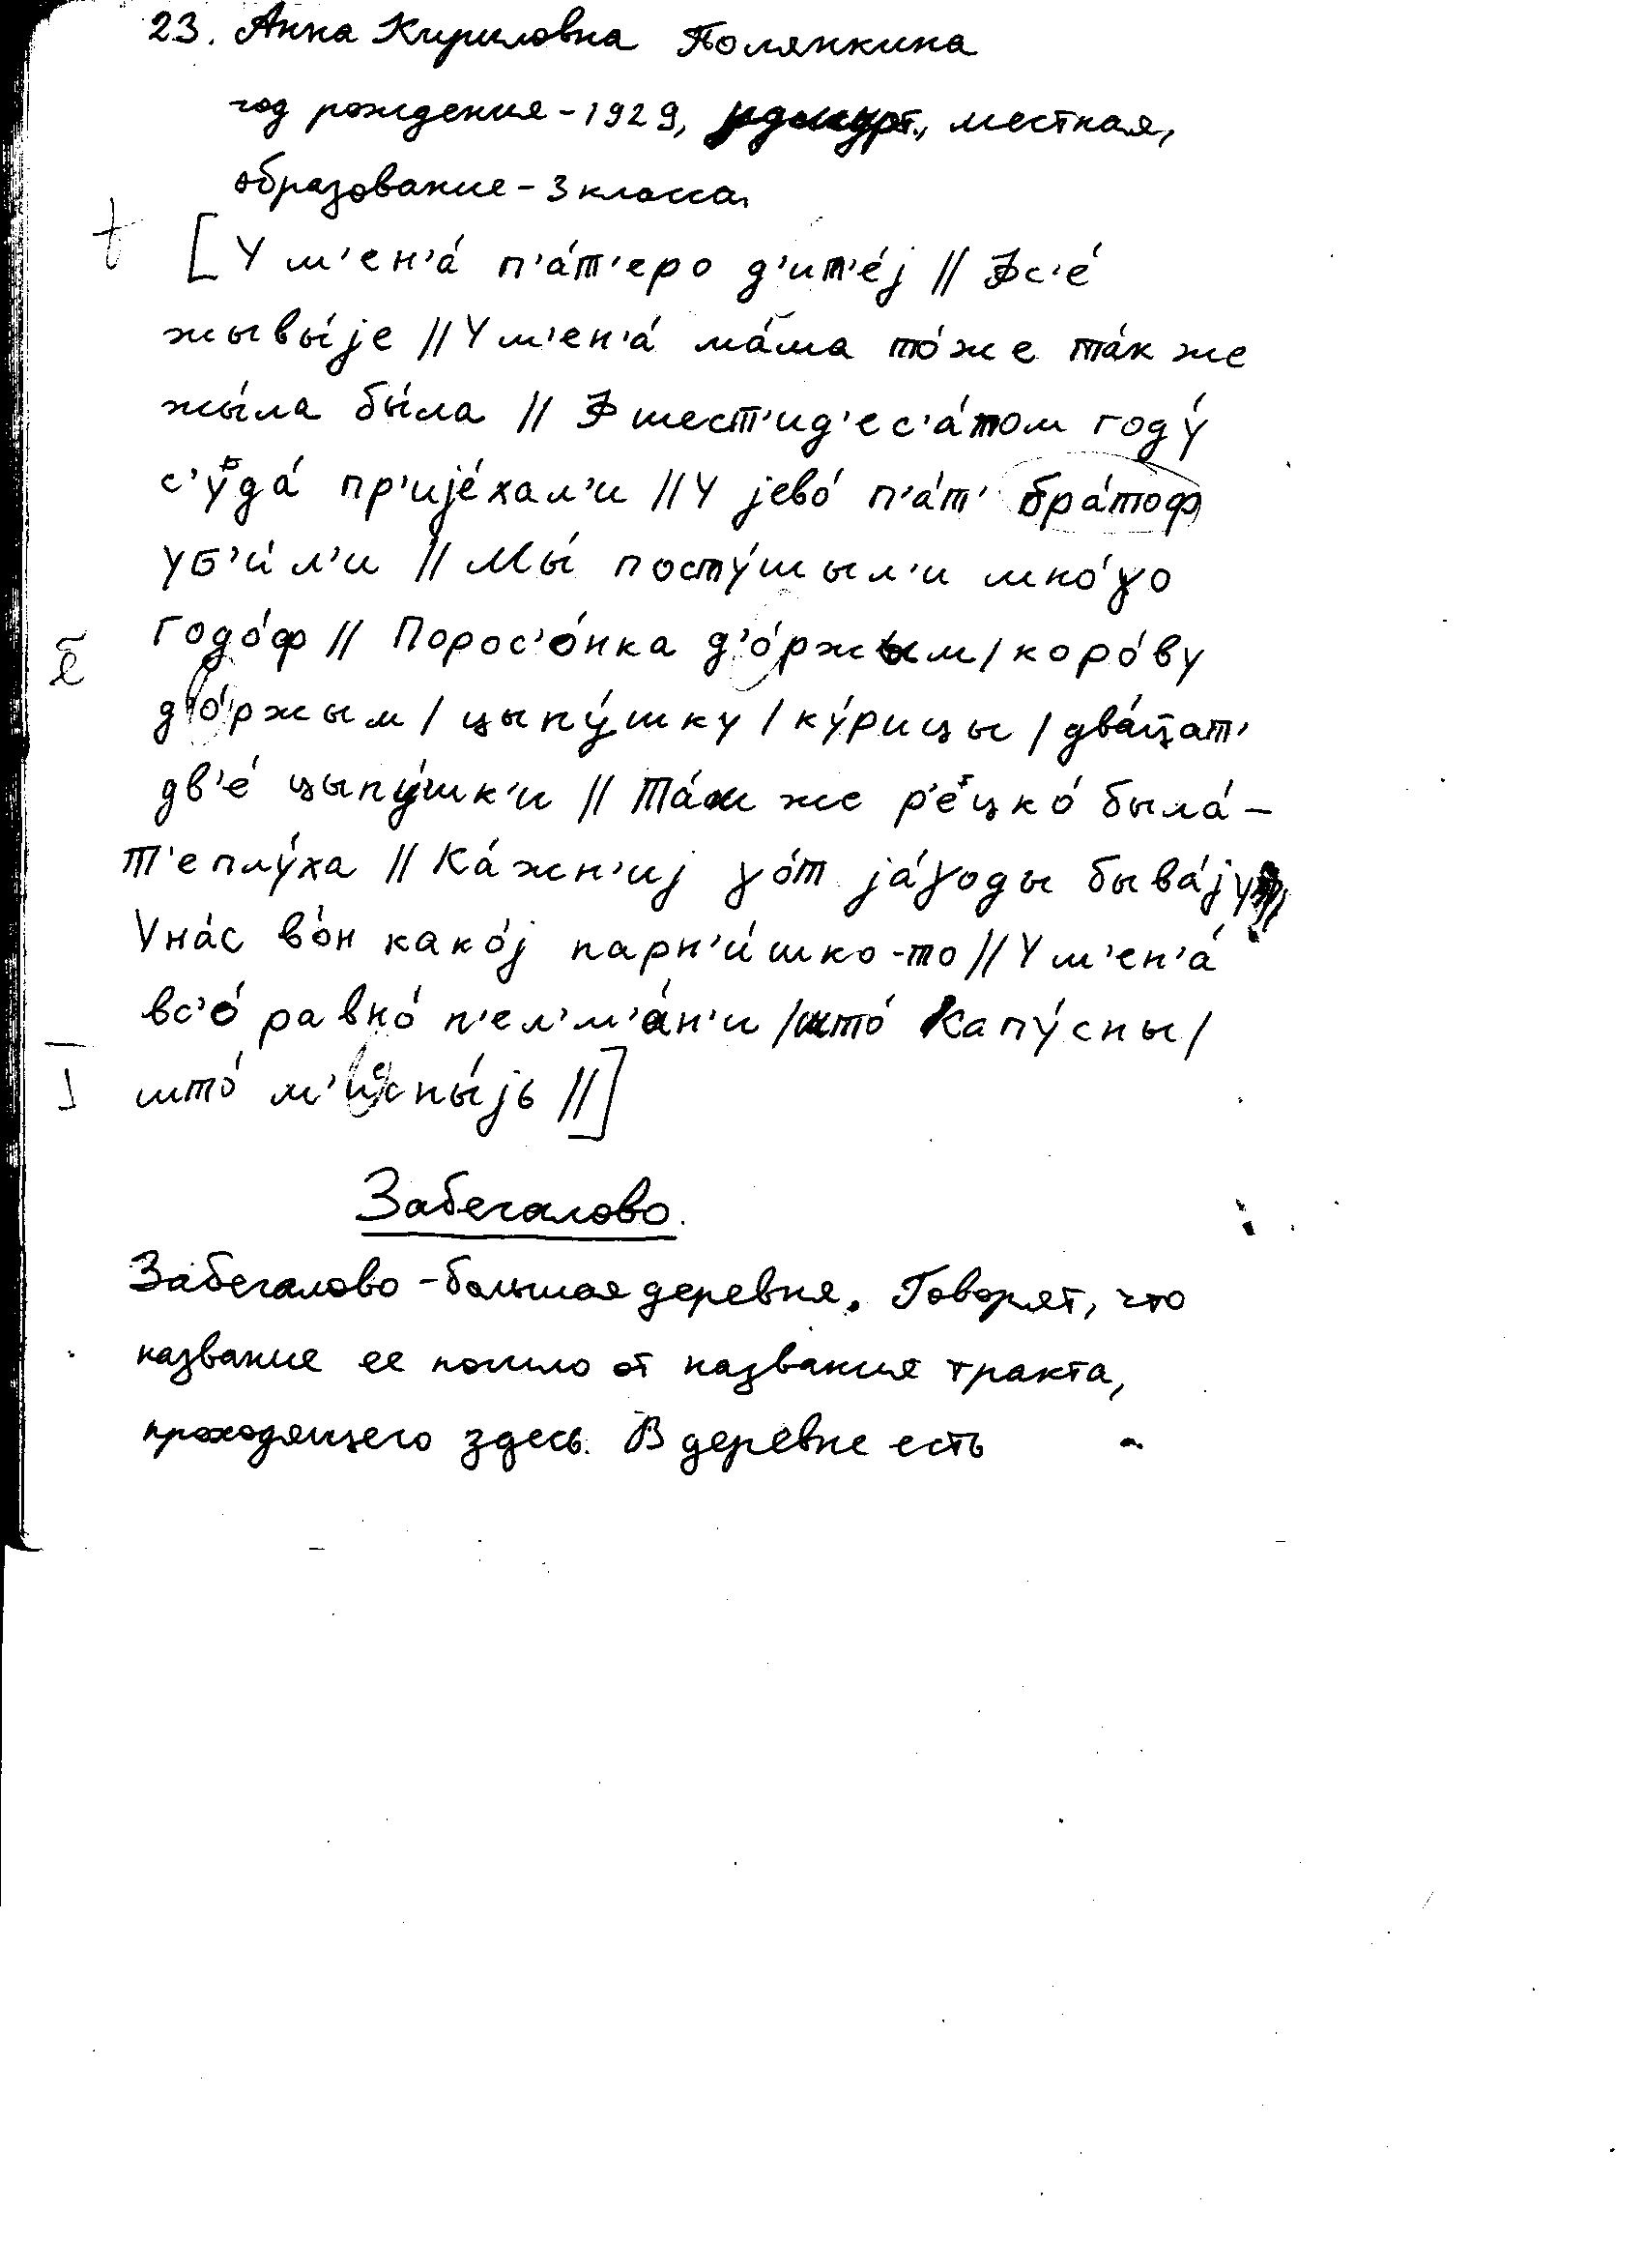 23. Анна Кириловна Полянкина
год рождения - 1929, удмурт., местная,
образование - 3 класса.
[У м'ен'а́ п'а́т'еро д'ит'е́j // Фс'е́
жывы́jе // У м'ен'а́ ма́ма то́же та́к же
жы́ла бы́ла // Ф шест'ид'ес'а́том году́
с'уда́ пр'иjе́хал'и // У jево́ п'а́т' бра́тоф
уб'и́л'и // Мы́ посту́шыл'и мно́γо
годо́ф // Порос'о́нка д'о́ржым / коро́ву
д'о́ржым / цыпу́шку / ку́рицы / два́цат'
дв'е́ цыпу́шк'и // Та́м же р'е́цко́ была́ -
т'еплу́ха // Ка́жн'иj γо́т jа́γоды быва́jут //
У на́с во́н како́j парн'и́шко-то // У м'ен'а́
вс'о́ равно́ п'ел'м'а́н'и / што́ капу́сны /
што́ м'исны́jь //]
Забегалово.
Забегалово - большая деревня. Говорят, что
название ее пошло от названия тракта,
проходящего здесь. В деревне есть